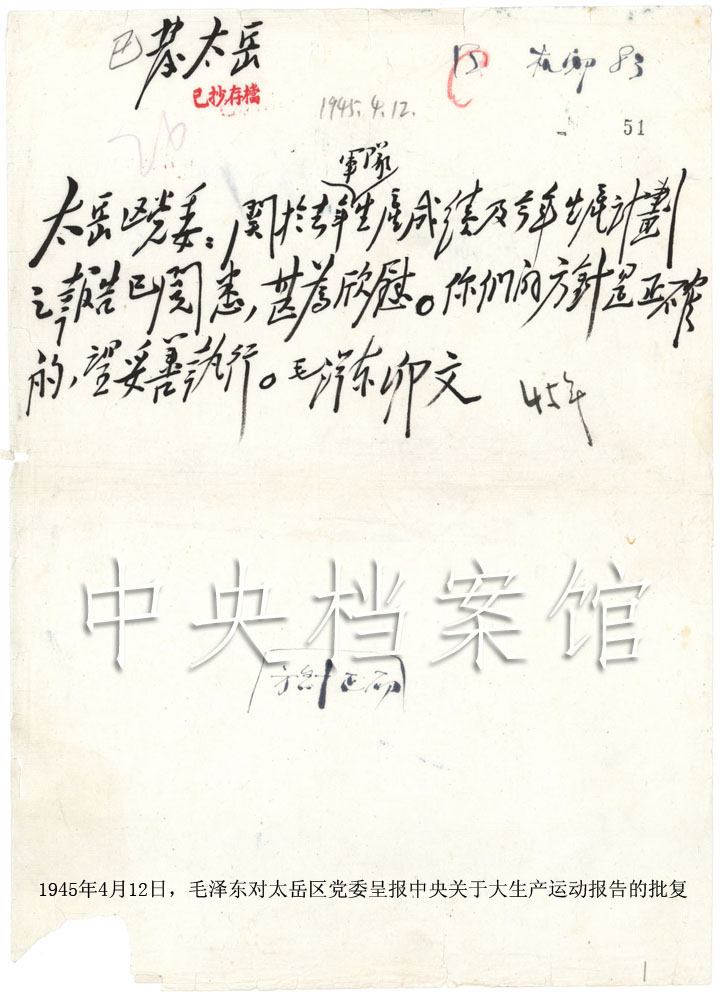 发太岳
已抄存檔
1945.4.12.
51
軍隊
太岳区党委：関於去年生産成績及今年生産計劃
之報告已閲悉，甚為欣慰。你们的方針是正確
的，望妥善執行。毛澤东卯文
45年
中央档案馆
方針正确
1945年4月12日，毛泽东对太岳区党委呈报中央关于大生产运动报告的批复